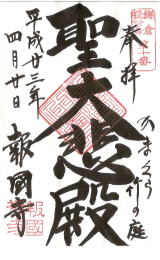 鎌倉
十番
奉拝
かまくら
竹の庭
聖大悲殿
平成廿三年
四月廿日
報國寺
報國寺